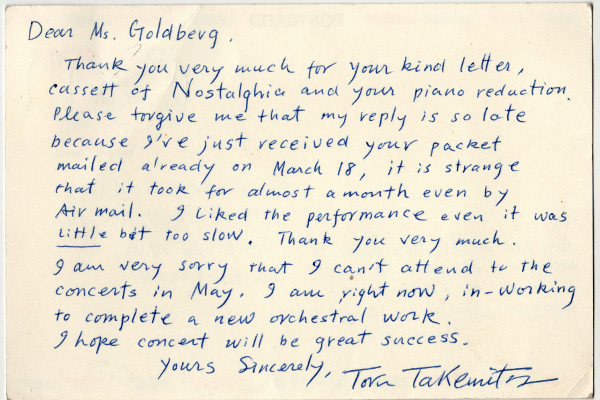 Dear Ms. Goldberg.
Thank you very much for your kind letter,
cassett of Nostalghia and your piano reduction.
Please forgive me that my reply is so late
because I've just received your packet
mailed already on March 18, it is strange
that it took for almost a month even by
Air mail. I liked the performance even it was
little bit too slow. Thank you very much.
I am very sorry that I can't attend to the
concerts in May. I am, right now, in-working
to complete a new orchestral work.
I hope concert will be great success.
Yours Sincerely, Toru Takemitsu